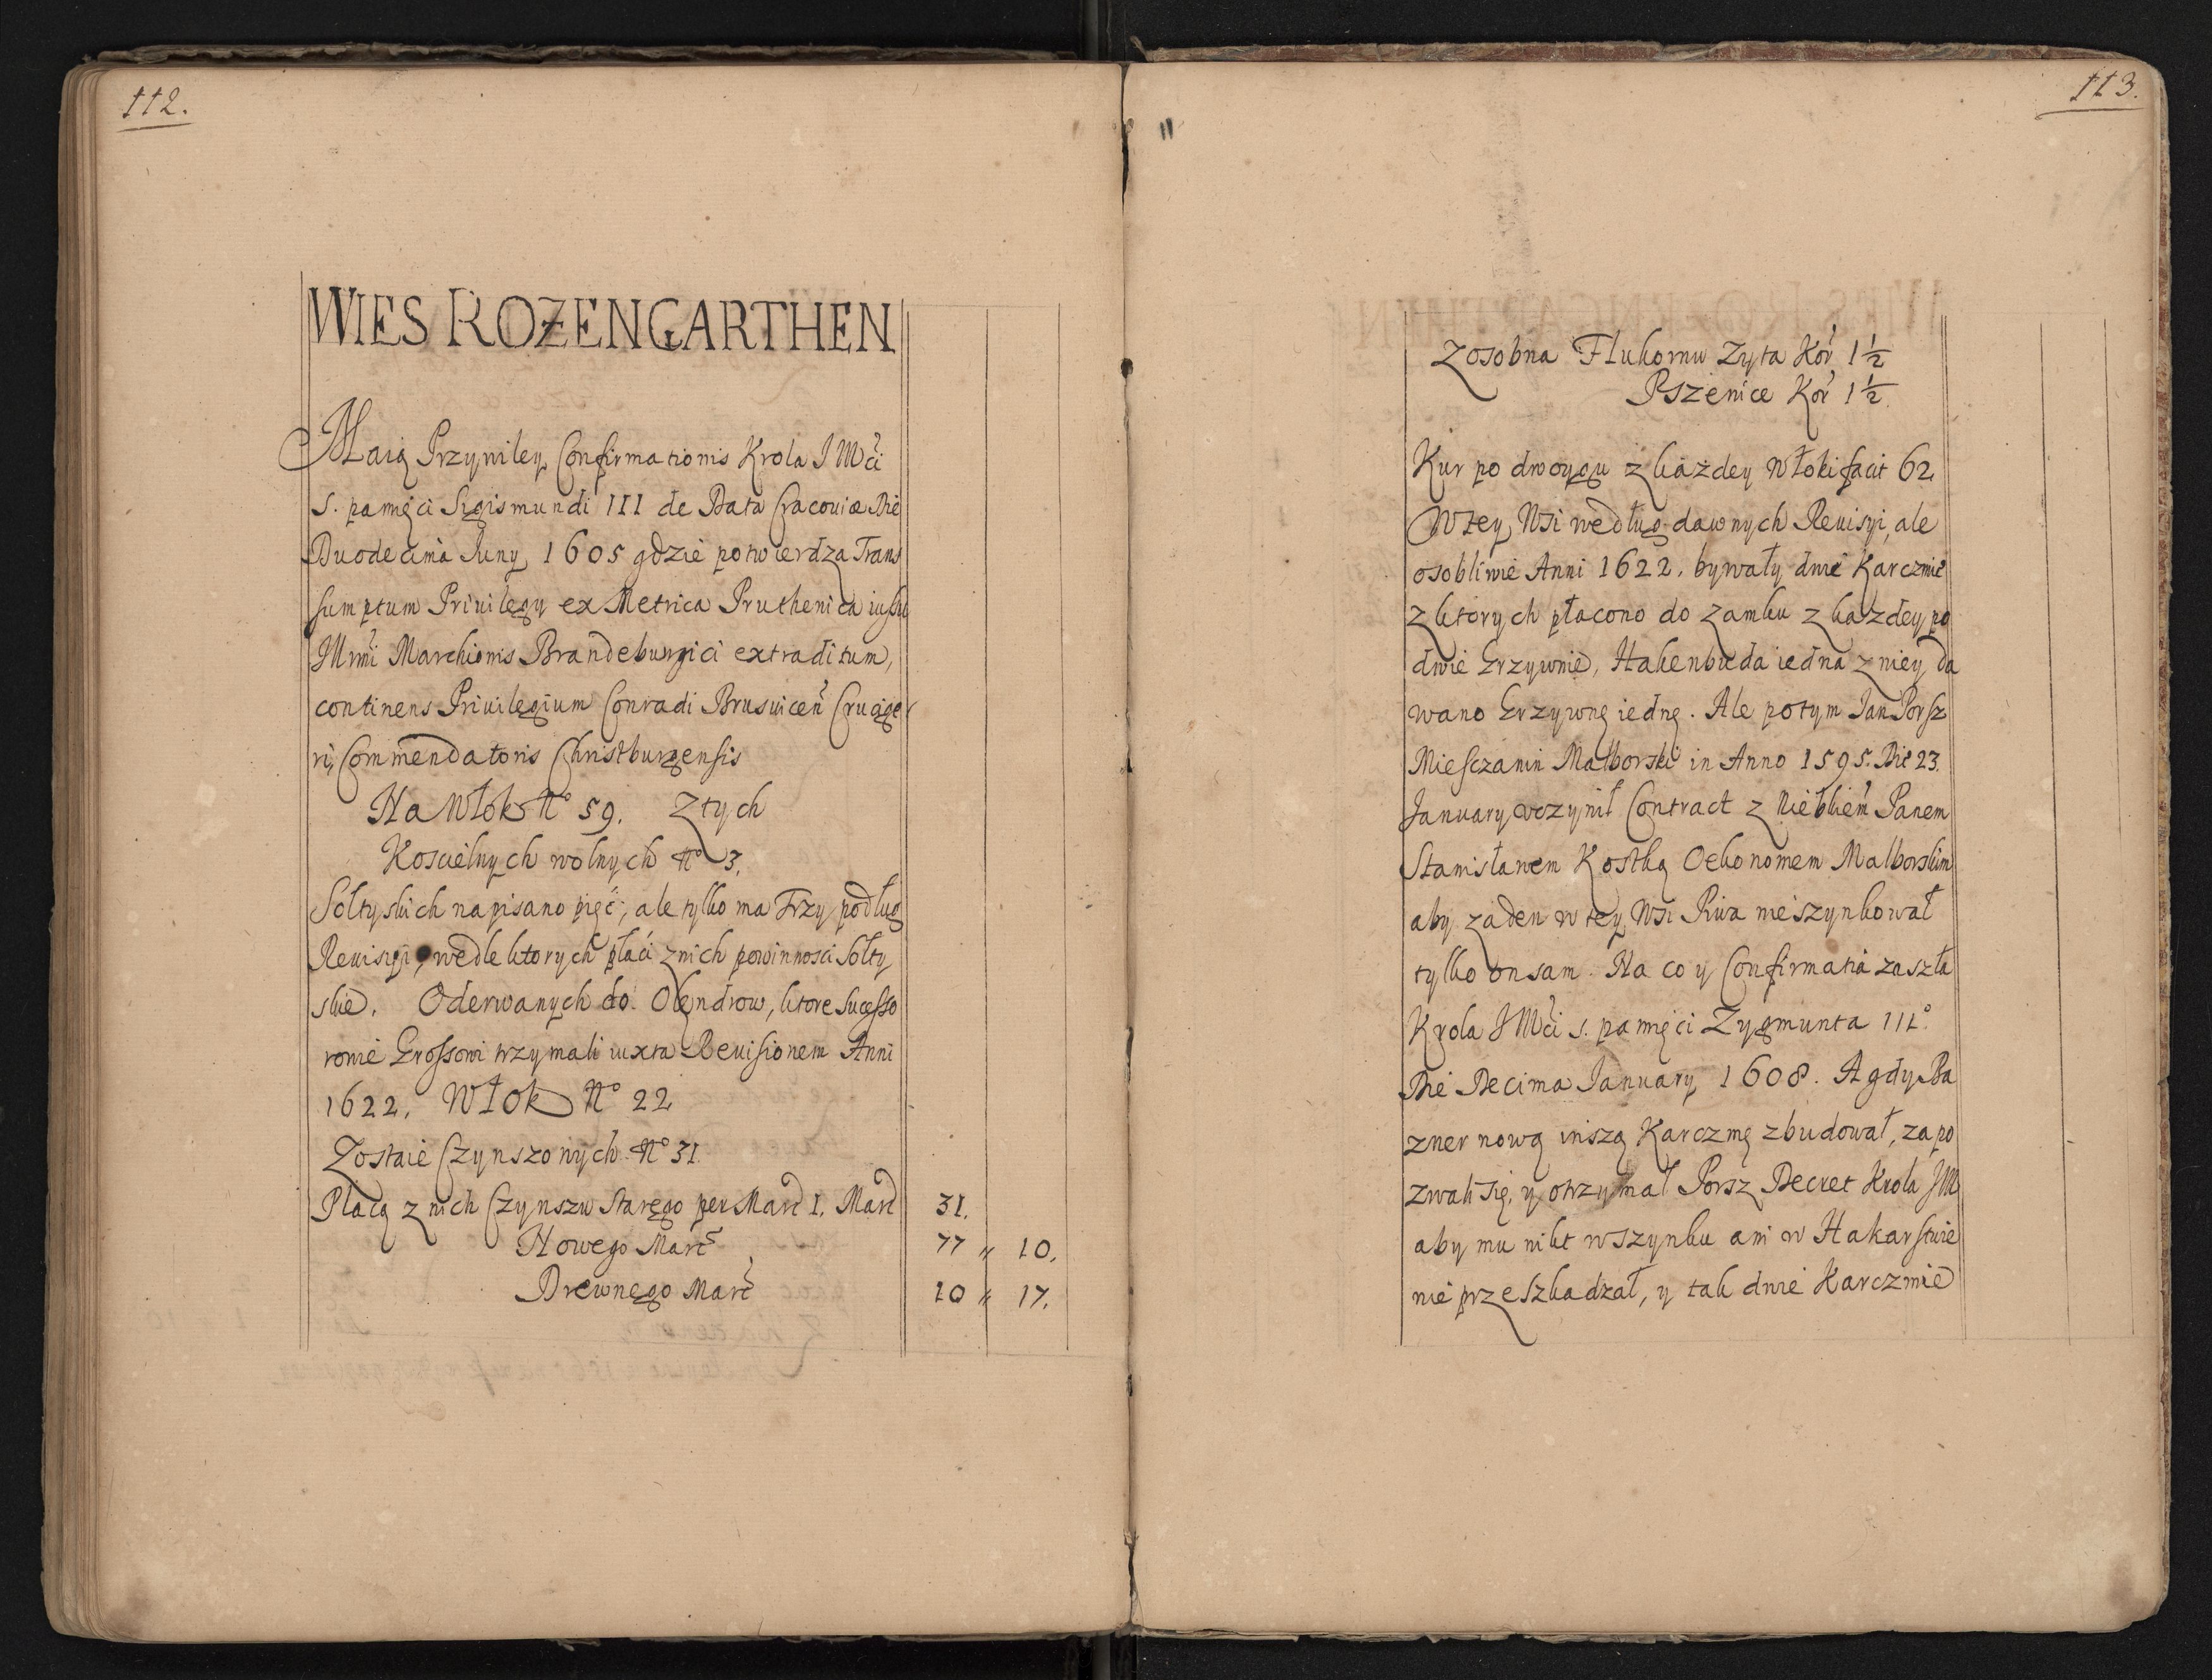 112.
WIES ROZENGARTHEN
Maią Przywiley Confirmationis Krola J Mći
S. pamięci Sigismundi III de Data Cracoviæ Die
Duodecima Juny 1605 gdzie potwierdza Trans
sumptum Privilegy ex Metrica Pruthenica iussu
Illrmi Marchionis Brandeburgici extraditum,
continens Privilegium Conradi Brusvicen Crucige
ri, Commendatoris Christburgensis
Na Włok No 59. Z tych
Koscielnych wolnych No 3.
Sołtyskich napisano pięć; ale tylko ma Trzy podług
Rewisyi, wedle ktorych płaci z nich powinnosci Sołty
skie. Oderwanych do Olendrow, ktore Sucesso
rowie Grossowi trzymali iuxta Revisionem Anni
1622. Włok No 22
Zostaie Czynszowych No 31.
Płacą z nich Czynszu Starego per Marc 1. Marc 31.
Nowego Marc 77 " 10.
Drewnego Marc 10 " 17.
113.
Zosobna Flukornu Zyta Kor 1½
Pszenice Kor 1½
Kur po dwoygu z każdey Włoki facit 62
W tey Wsi według dawnych Revisyi, ale
osobliwie Anni 1622. bywały dwie Karczmie
z ktorych płacono do zamku z każdey po
dwie Grzywnie, Hakenbuda iedna z niey da
wano Grzywnę iednę. Ale potym Jan Porsz
Miesczanin Malborski in Anno 1595. Die 23.
January uczynił Contract z Niebkiem Panem
Stanisławem Kostką Oekonomem Malborskim
aby zaden w tey Wsi Piwa nieszynkował
tylko on sam. Na co y Confirmatia zaszła
Krola J Mći S. pamięci Zygmunta III.
Die Decima January 1608. A gdy Ba
zner nową inszą Karczmę zbudował, zapo
zwali się, y otrzymał Porsz Decret Krola JM
aby mu nikt w szynku ani w Hakarstwie
nie przeszkadzał, y tak dwie Karczmie